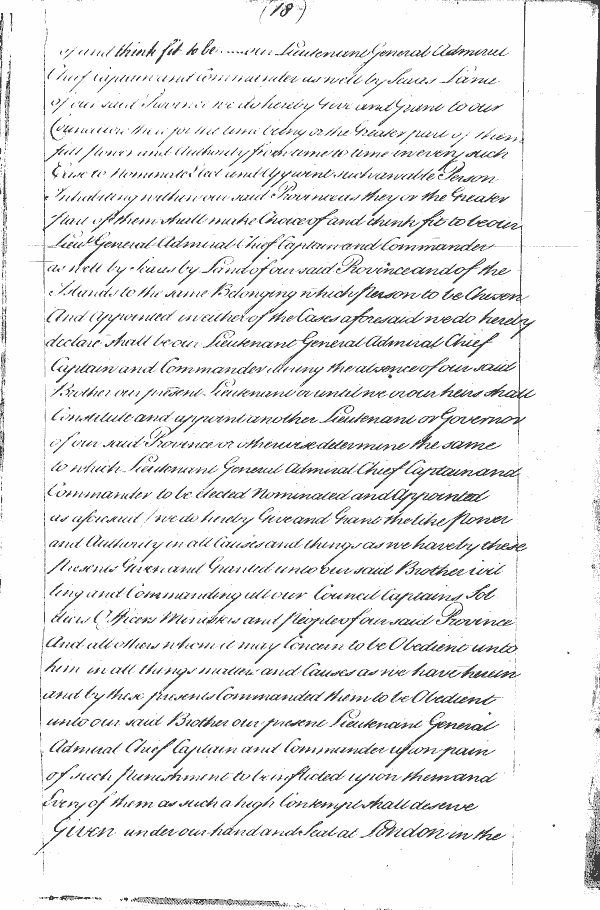 (18)
of and think fit to be ...... our Lieutenant General Admiral
Chief Captain and Commander as well by Seas as Land
of our said Province we do hereby Give and Grant to our
Councilors there for the time being or the Greater part of them
full Power and Authority from time to time in every such
Case to Nominate Elect and Appoint such an able Person
Inhabiting within our said Province as they or the Greater
Part of them shall make Choice of and think fit to be our
Lieut General Admiral Chief Captain and Commander
as well by Sea as by Land of our said Province and of the
Islands to the same Belonging which person to be Chosen
And Appointed in either of the Cases aforesaid we do hereby
declare shall be our Lieutenant General Admiral Chief
Captain and Commander during the absence of our said
Brother our present Lieutenant or until we or our heirs shall
Constitute and appoint another Lieutenant or Governor
of our said Province or otherwise determine the same
to which Lieutenant General Admiral Chief Captain and
Commander to be elected Nominated and Appointed
as aforesaid / we do hereby Give and Grant the like Power
and Authority in all Causes and things as we have by these
Presents Given and Granted unto our said Brother wil
ling and Commanding all our Council Captains Sol
diers Officers Ministers and People of our said Province
And all others whom it may Concern to be Obedient unto
him in all things matters and Causes as we have herein
and by these presents Commanded them to be Obedient
unto our said Brother our present Lieutenant General
Admiral Chief Captain and Commander upon pain
of such punishment to be inflicted upon them and
Every of them as such a high Contempt shall deserve
Given under our hand and Seal at London in the